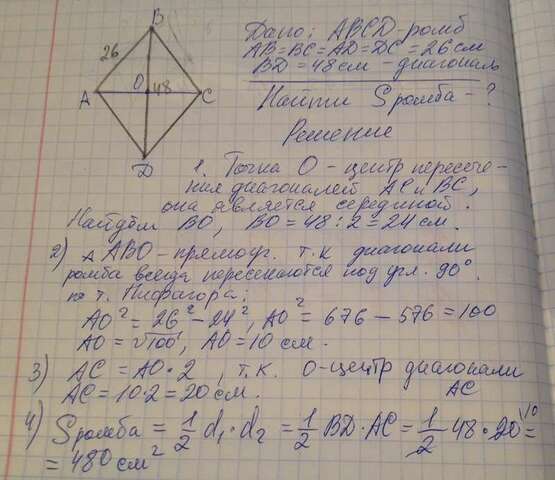 B
26
A
O
48
C
D
Дано: ABCD-ромб
AB=BC=AD=DC=26см
BD=48см-диагональ
Найти Sромба-?
Решение
1. Точка О-центр пересече-
ния диагоналей AC и BC,
она является серединой.
Найдём BO, BO=48:2=24см.
2) △ ABO-прямоуг. т.к диагонали
ромба всегда пересекаются под угл. 90°.
по т. Пифагора:
AO²=26²-24², AO²=676-576=100
AO=√100, AO=10 см.
3) AC=AO·2, т.к. О-центр диагонали
AC=10·2=20см. AC
4) Sромба=1/2 d₁·d₂=1/2 BD·AC=1/2 48·20 10=
=480 см²